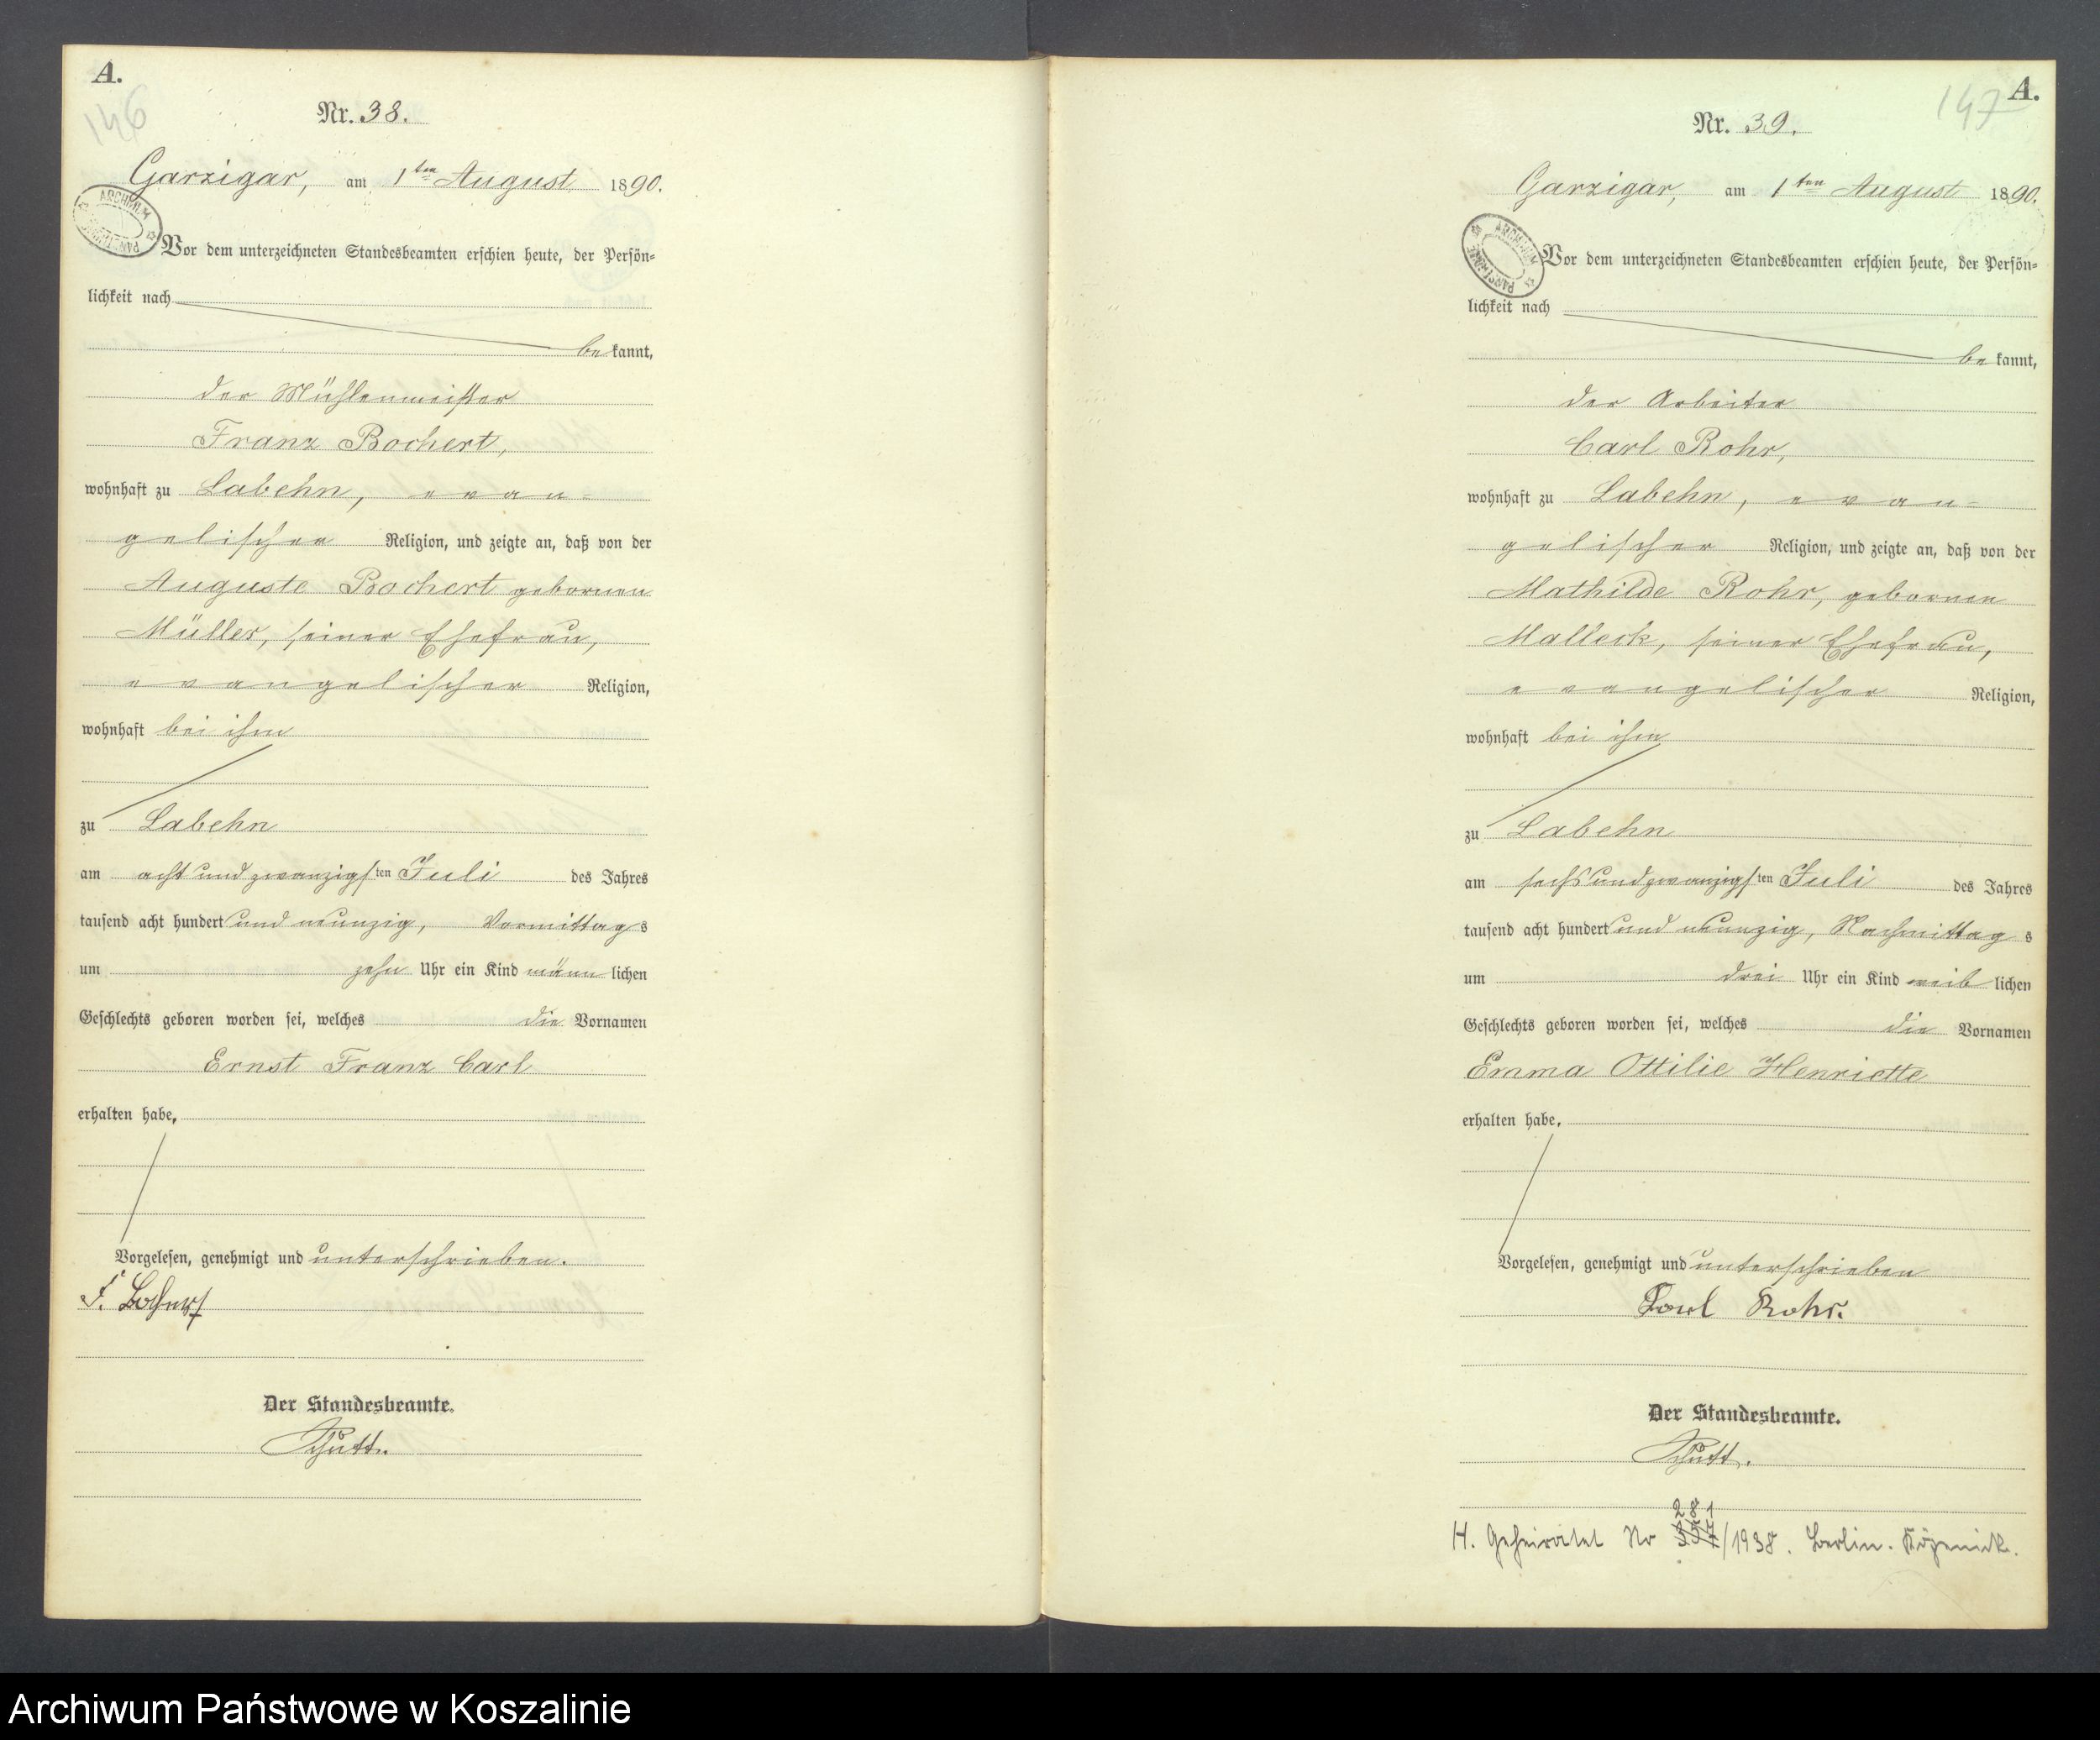 A.
146
Nr. 38.
Garzigar, am 1ten August 1890.
ARCHIWUM PAŃSTWOWE
Vor dem unterzeichneten Standesbeamten erschien heute, der Persön=
lichkeit nach
be kannt,
der Mühlenmeister
Franz Bochert,
wohnhaft zu Labehn, evan=
gelischer Religion, und zeigte an, daß von der
Auguste Bochert gebornen
Müller, seiner Ehefrau,
evangelischer Religion,
wohnhaft bei ihm
zu Labehn
am acht und zwanzigsten Juli des Jahres
tausend acht hundert und neunzig, Vormittags
um zehn Uhr ein Kind männlichen
Geschlechts geboren worden sei, welches die Vornamen
Ernst Franz Carl
erhalten habe.
Vorgelesen, genehmigt und unterschrieben.
F. Bochert
Der Standesbeamte.
Schütt.
A.
147
Nr. 39.
Garzigar, am 1ten August 1890.
ARCHIWUM PAŃSTWOWE
Vor dem unterzeichneten Standesbeamten erschien heute, der Persön=
lichkeit nach
be kannt,
der Arbeiter
Carl Rohr,
wohnhaft zu Labehn, evan=
gelischer Religion, und zeigte an, daß von der
Mathilde Rohr, gebornen
Malleck, seiner Ehefrau,
evangelischer Religion,
wohnhaft bei ihm
zu Labehn
am sechs und zwanzigsten Juli des Jahres
tausend acht hundert und neunzig, Nachmittags
um drei Uhr ein Kind weiblichen
Geschlechts geboren worden sei, welches die Vornamen
Emma Ottilie Henriette
erhalten habe.
Vorgelesen, genehmigt und unterschrieben
Carl Rohr.
Der Standesbeamte.
Schütt.
281
H. Geheiratet Nr /1938. Berlin. Köpenick.
Archiwum Państwowe w Koszalinie